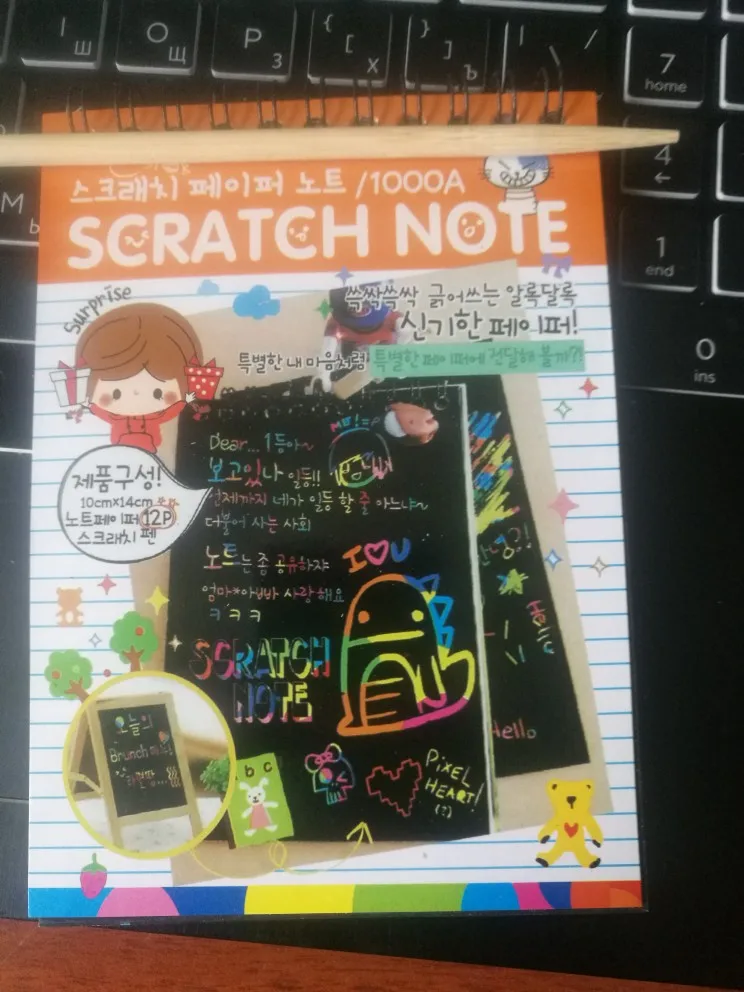 { [
} ]
| /
І Ш
О Щ
Р З
Х
Ъ
7
home
4
←
М Ь
1
end
0
ins
스크래치 페이퍼 노트 /1000A
SCRATCH NOTE
Surprise
쓱싹쓱싹 긁어쓰는 알록달록
신기한 페이퍼!
특별한 내 마음처럼 특별한 페이퍼에 전달해 볼까?!
Dear... 1등아~
보고있나 일등!!
언제까지 네가 일등 할 줄 아느냐~
더불어 사는 사회
제품구성!
10cmX14cm
노트페이퍼 12P
스크래치 펜
노트는 좀 공유하쟈
I ♡ U
엄마*아빠 사랑해요
ㅋㅋㅋ
SCRATCH
NOTE
Hello
오늘의
Brunch 메뉴!
라면땅...
b c
PiXEL
HEART!
(?)